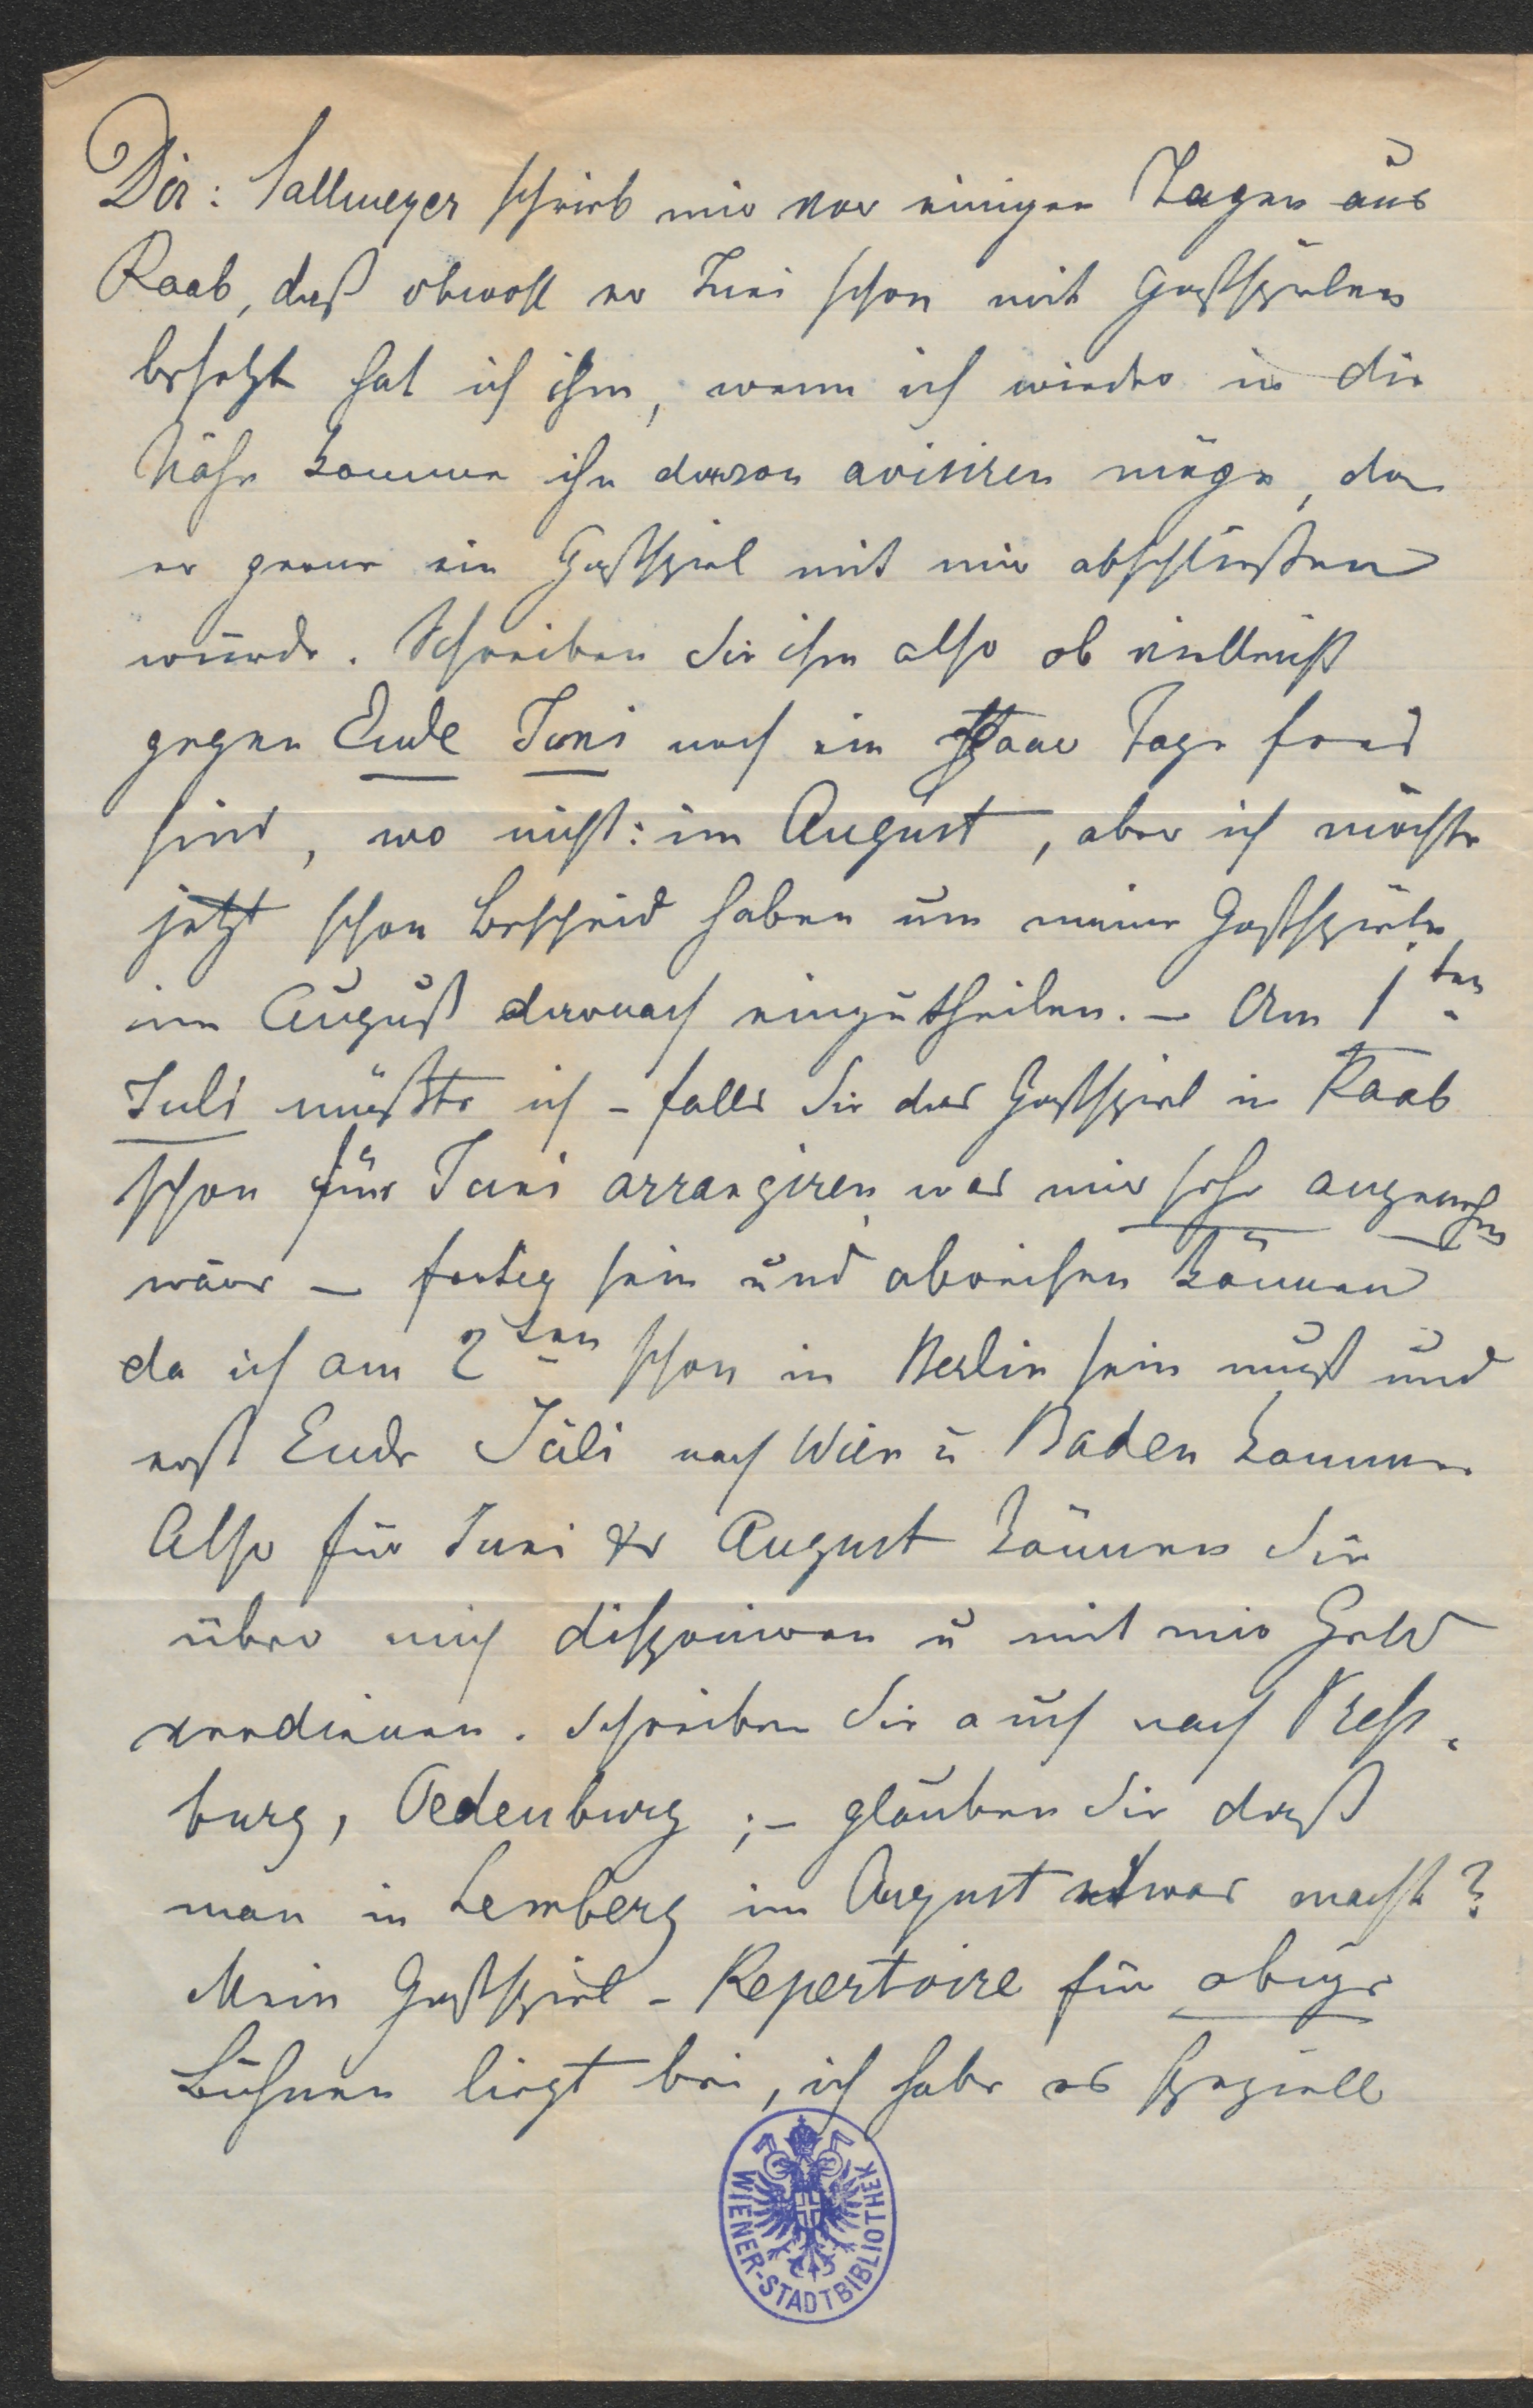 Dir: Sallmeyer schrieb mir vor einigen Tagen aus
Raab, daß obwohl er Juni schon mit Gastspielen
besetzt hat ich ihm, wenn ich wieder in die
Nähe komme ihn davon avisiren möge, da
er gerne ein Gastspiel mit mir abschließen
würde. Schreiben Sie ihm also ob vielleicht
gegen Ende Juni noch ein Paar Tage frei
sind, wo nicht: im August, aber ich möchte
jetzt schon Bescheid haben um meine Gastspiele
im August darnach einzutheilen. – Am 1ten
Juli müßte ich – falls Sie das Gastspiel in Raab
schon für Juni arrangiren was mir sehr angenehm
wäre – fertig sein und abreisen können
da ich am 2ten schon in Berlin sein muß und
erst Ende Juli nach Wien u Baden komme.
Also für Juni & August können Sie
über mich disponiren u mit mir Geld
verdienen. Schreiben Sie auch nach Press-
burg, Oedenburg ;– glauben Sie daß
man in Lemberg im August etwas macht?
Mein Gastspiel-Repertoire für obige
Bühnen liegt bei, ich habe es speziell
WIENER-STADTBIBLIOTHEK